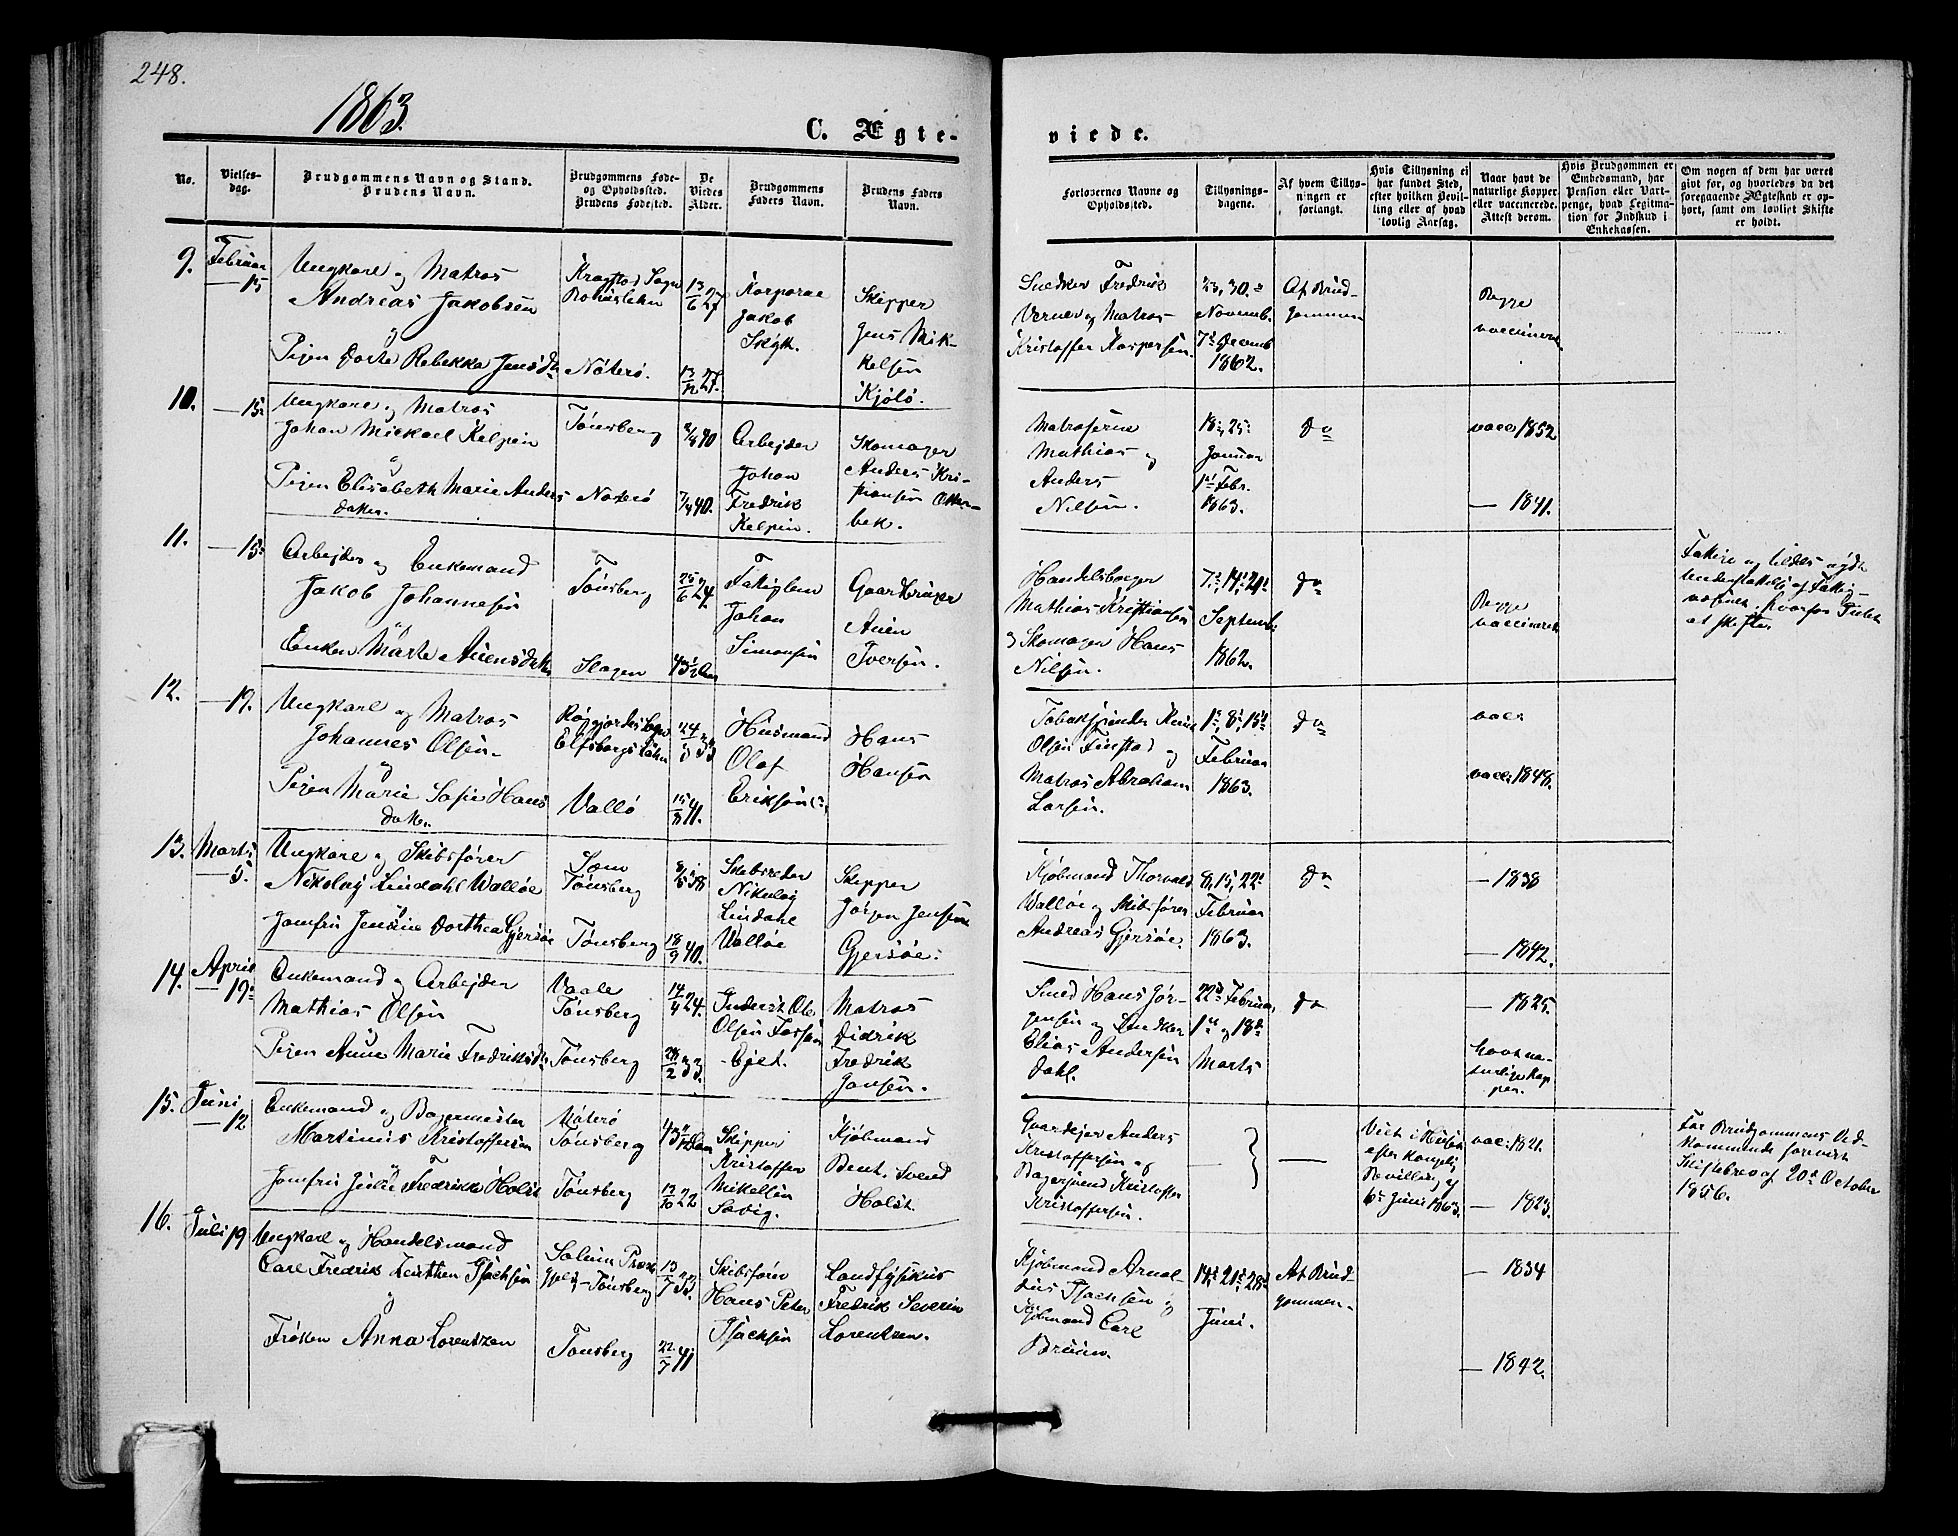 248.
1863.
C. Ægte-
viede.
No.
Vielses-
dag.
Brudgommens Navn og Stand.
Brudens Navn.
Brudgommens Føde-
og Opholdssted.
Brudens Fødested.
De
Viedes
Alder.
Brudgommens
Faders Navn.
Brudens Faders
Navn.
Forlovernes Navne og
Opholdssted.
Tillysnings-
dagene.
Af hvem Tillys-
ningen er
forlangt.
Hvis Tillysning ei
har fundet Sted,
efter hvilken Bevil-
ling eller af hvad
lovlig Aarsag.
Naar havt de
naturlige Kopper
eller vaccinerede.
Attest derom.
Hvis Brudgommen er
Embedsmand, har
Pension eller Vart-
penge, hvad Legitma-
tion for Indskud i
Enkekassen.
Om nogen af dem har været
givt for, og hvorledes da det
foregaaende Ægteskab er op-
hørt, samt om lovligt Skifte
er holdt.
9.
Februar
— 15
Ungkarl og Matros
Andreas Jakobsen
og
Pigen Dorte Rebekka Jensdtr
Sogn
Nøterø.
13/6 27
13/12 27.
Korporal
Jakob
Skipper
Jens Mik-
kelsen
Kjølø.
Snedker Fredrik
Verner og Matros
Kristoffer Kaspersen.
23, 30te
Novemb.
7de Decemb
1862.
Af Brud-
gommen
Begge
vaccinered
10.
— 15.
Ungkarl og Matros
Johan Mickael
og
Pigen Elisabeth Marie Anders
datter.
Tønsberg
Nøterø
40
7/4 40.
Arbeider
Johan
Fredrik
Skomager
Anders Kri-
stiansen
bek.
Matroserne
Mathias og
Anders
Nilsen.
18, 25
Januar
1ste Febr.
1863.
Do
vacc. 1852
— 1841.
11.
— 15.
Arbejder og Enkemand
Jakob Johannesen
og
Enken Marte Auensdtr
Tønsberg
Slagen
25/6 24
Fattiglem
Johan
Simonsen
Gaardbruger
Auen
Iversen.
Handelsborger
Mathias Kristiansen
og Skomager Hans
Nilsen.
7de, 14de, 21de
Septemb.
1862.
Do
Begge
vaccinerede
hvorfor Intet
at skifte.
12.
— 19.
Ungkarl og Matros
Johannes Olsen
og
Pigen Marie Sofie Hans
datter.
Elfsborgs Lehn
Vallø
24/3 33
15/3 41.
Husmand
Olof
Eriksen
Hans
Hansen
Olsen Finstad og
Matros Abraham
Larsen.
1ste, 8de, 15de
Februar
1863.
Do
vacc.
vacc. 1848.
13.
Marts
— 5.
Ungkarl og Skibsfører
Nikolay Lindahl Walløe
og
Jomfru Jensine Dorthea Gjersøe
Sem
Tønsberg
Tønsberg
8/5 38
18/9 40.
Skibsreder
Nikolay
Lindahl
Walløe
Skipper
Jørgen Jensen
Gjersøe.
Kjøbmand Thorvald
Walløe og Skibsfører
Andreas Gjersøe.
8, 15, 22de
Februar
1863.
Do
— 1838
— 1842.
14.
April
— 19de
Enkemand og Arbejder
Mathias Olsen
Pigen Anne Marie Fredriksdtr
Vaale
Tønsberg
Tønsberg
14/4 24.
28/2 33.
Inderst Ole
Olsen
Matros
Didrik
Fredrik
Jansen.
Smed Hans Jør-
gensen og Snedker
Elias Andersen
Dahl.
22de Februar,
1ste og 18de
Marts
Do
— 1825.
havt na-
turlige Kop-
per.
15.
Juni
— 12
Enkemand og Bagermester
Martinus Kristoffersen
og
Jomfru Julie Fredrikke Holst
Nøterø
Tønsberg
Tønsberg
13/10 22
Skipper
Kristoffer
Mikelsen
Kjøbmand
Bent Svend
Holst.
Gaardejer Anders
Kristoffersen og
Bagersvend Kristoffer
Kristoffersen.
—
—
Viet i Huset
efter Kongelig
Bevilling af
6te Juni 1863.
vac. 1821.
— 1823.
For Brudgommens Ved-
kommende forevist
Skiftebrev af 20de October
1856.
16.
Juli 19
Ungkarl og Handelsmand
Carl Fredrik Isachsen
og
Frøken Anna Lorentzen
Tønsberg
Tønsberg
13/7 33.
22/7 41
Skibsfører
Hans Peter
Isachsen
Landfysikus
Fredrik Severin
Lorentzen.
Kjøbmand Arnol-
dus Isachsen og
Kjøbmand Carl
Bruun.
14de, 21de, 28de
Juni.
Af Brud-
gommen.
— 1834
— 1842.